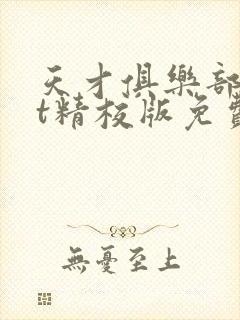 天才俱樂部
t精校版免費
無憂至上